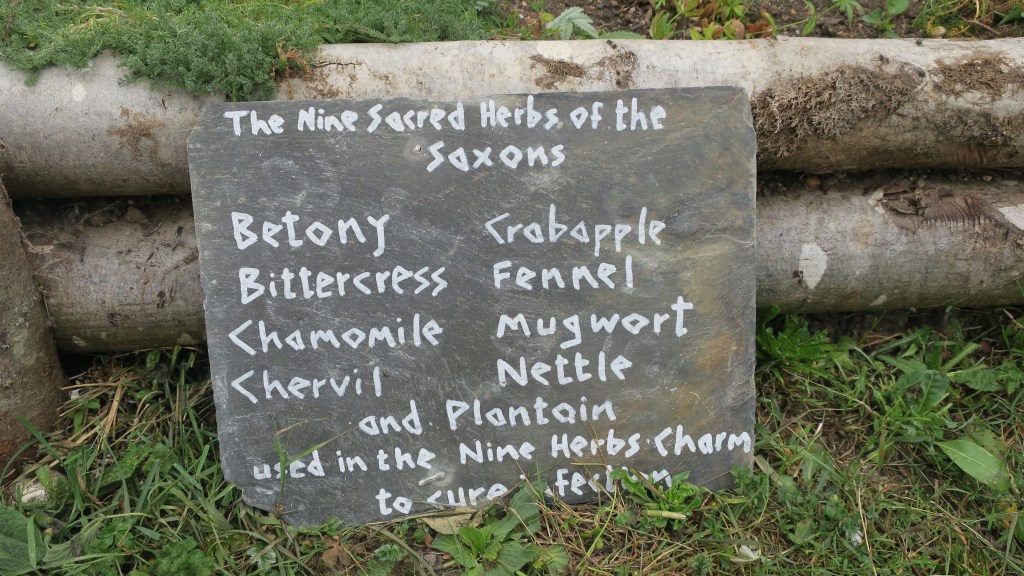 The Nine Sacred Herbs of the
Saxons
Betony Crabapple
Bittercress Fennel
Chamomile Mugwort
Chervil Nettle
and Plantain
used in the Nine Herbs Charm
to cure